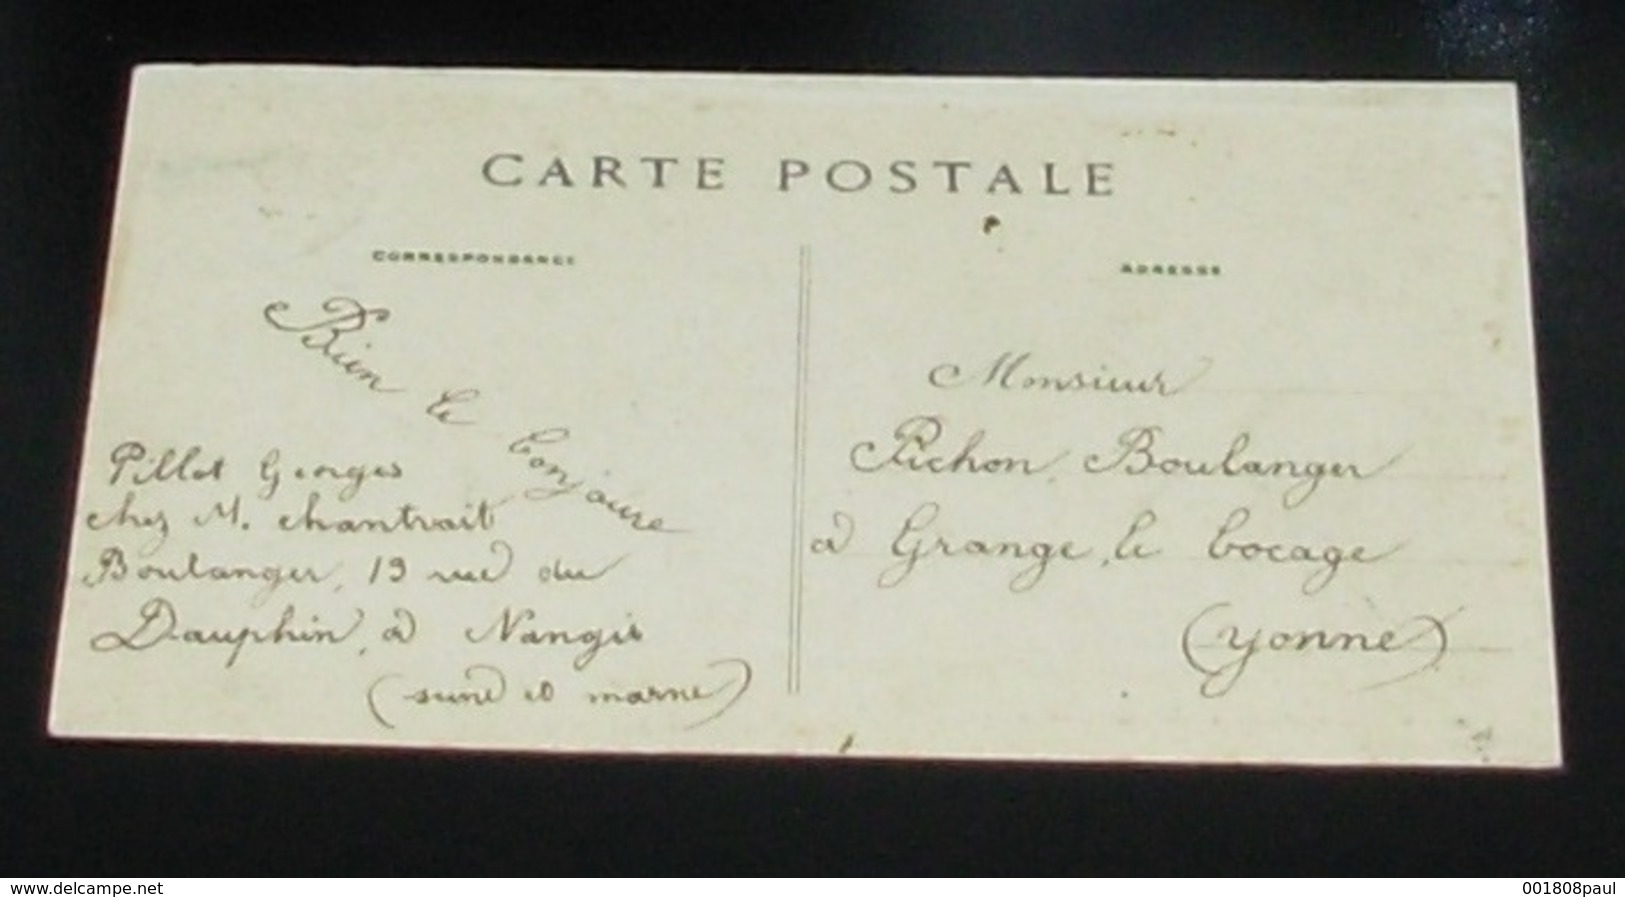 CARTE POSTALE
CORRESPONDANCE
Bien le bonjoure
Pillot Georges
chez M. chantrait
Boulanger, 19 rue du
Dauphin, à Nangis
(seine et marne)
ADRESSE
Monsieur
Pichon Boulanger
à Grange, le bocage
(yonne)
www.delcampe.net
001808paul